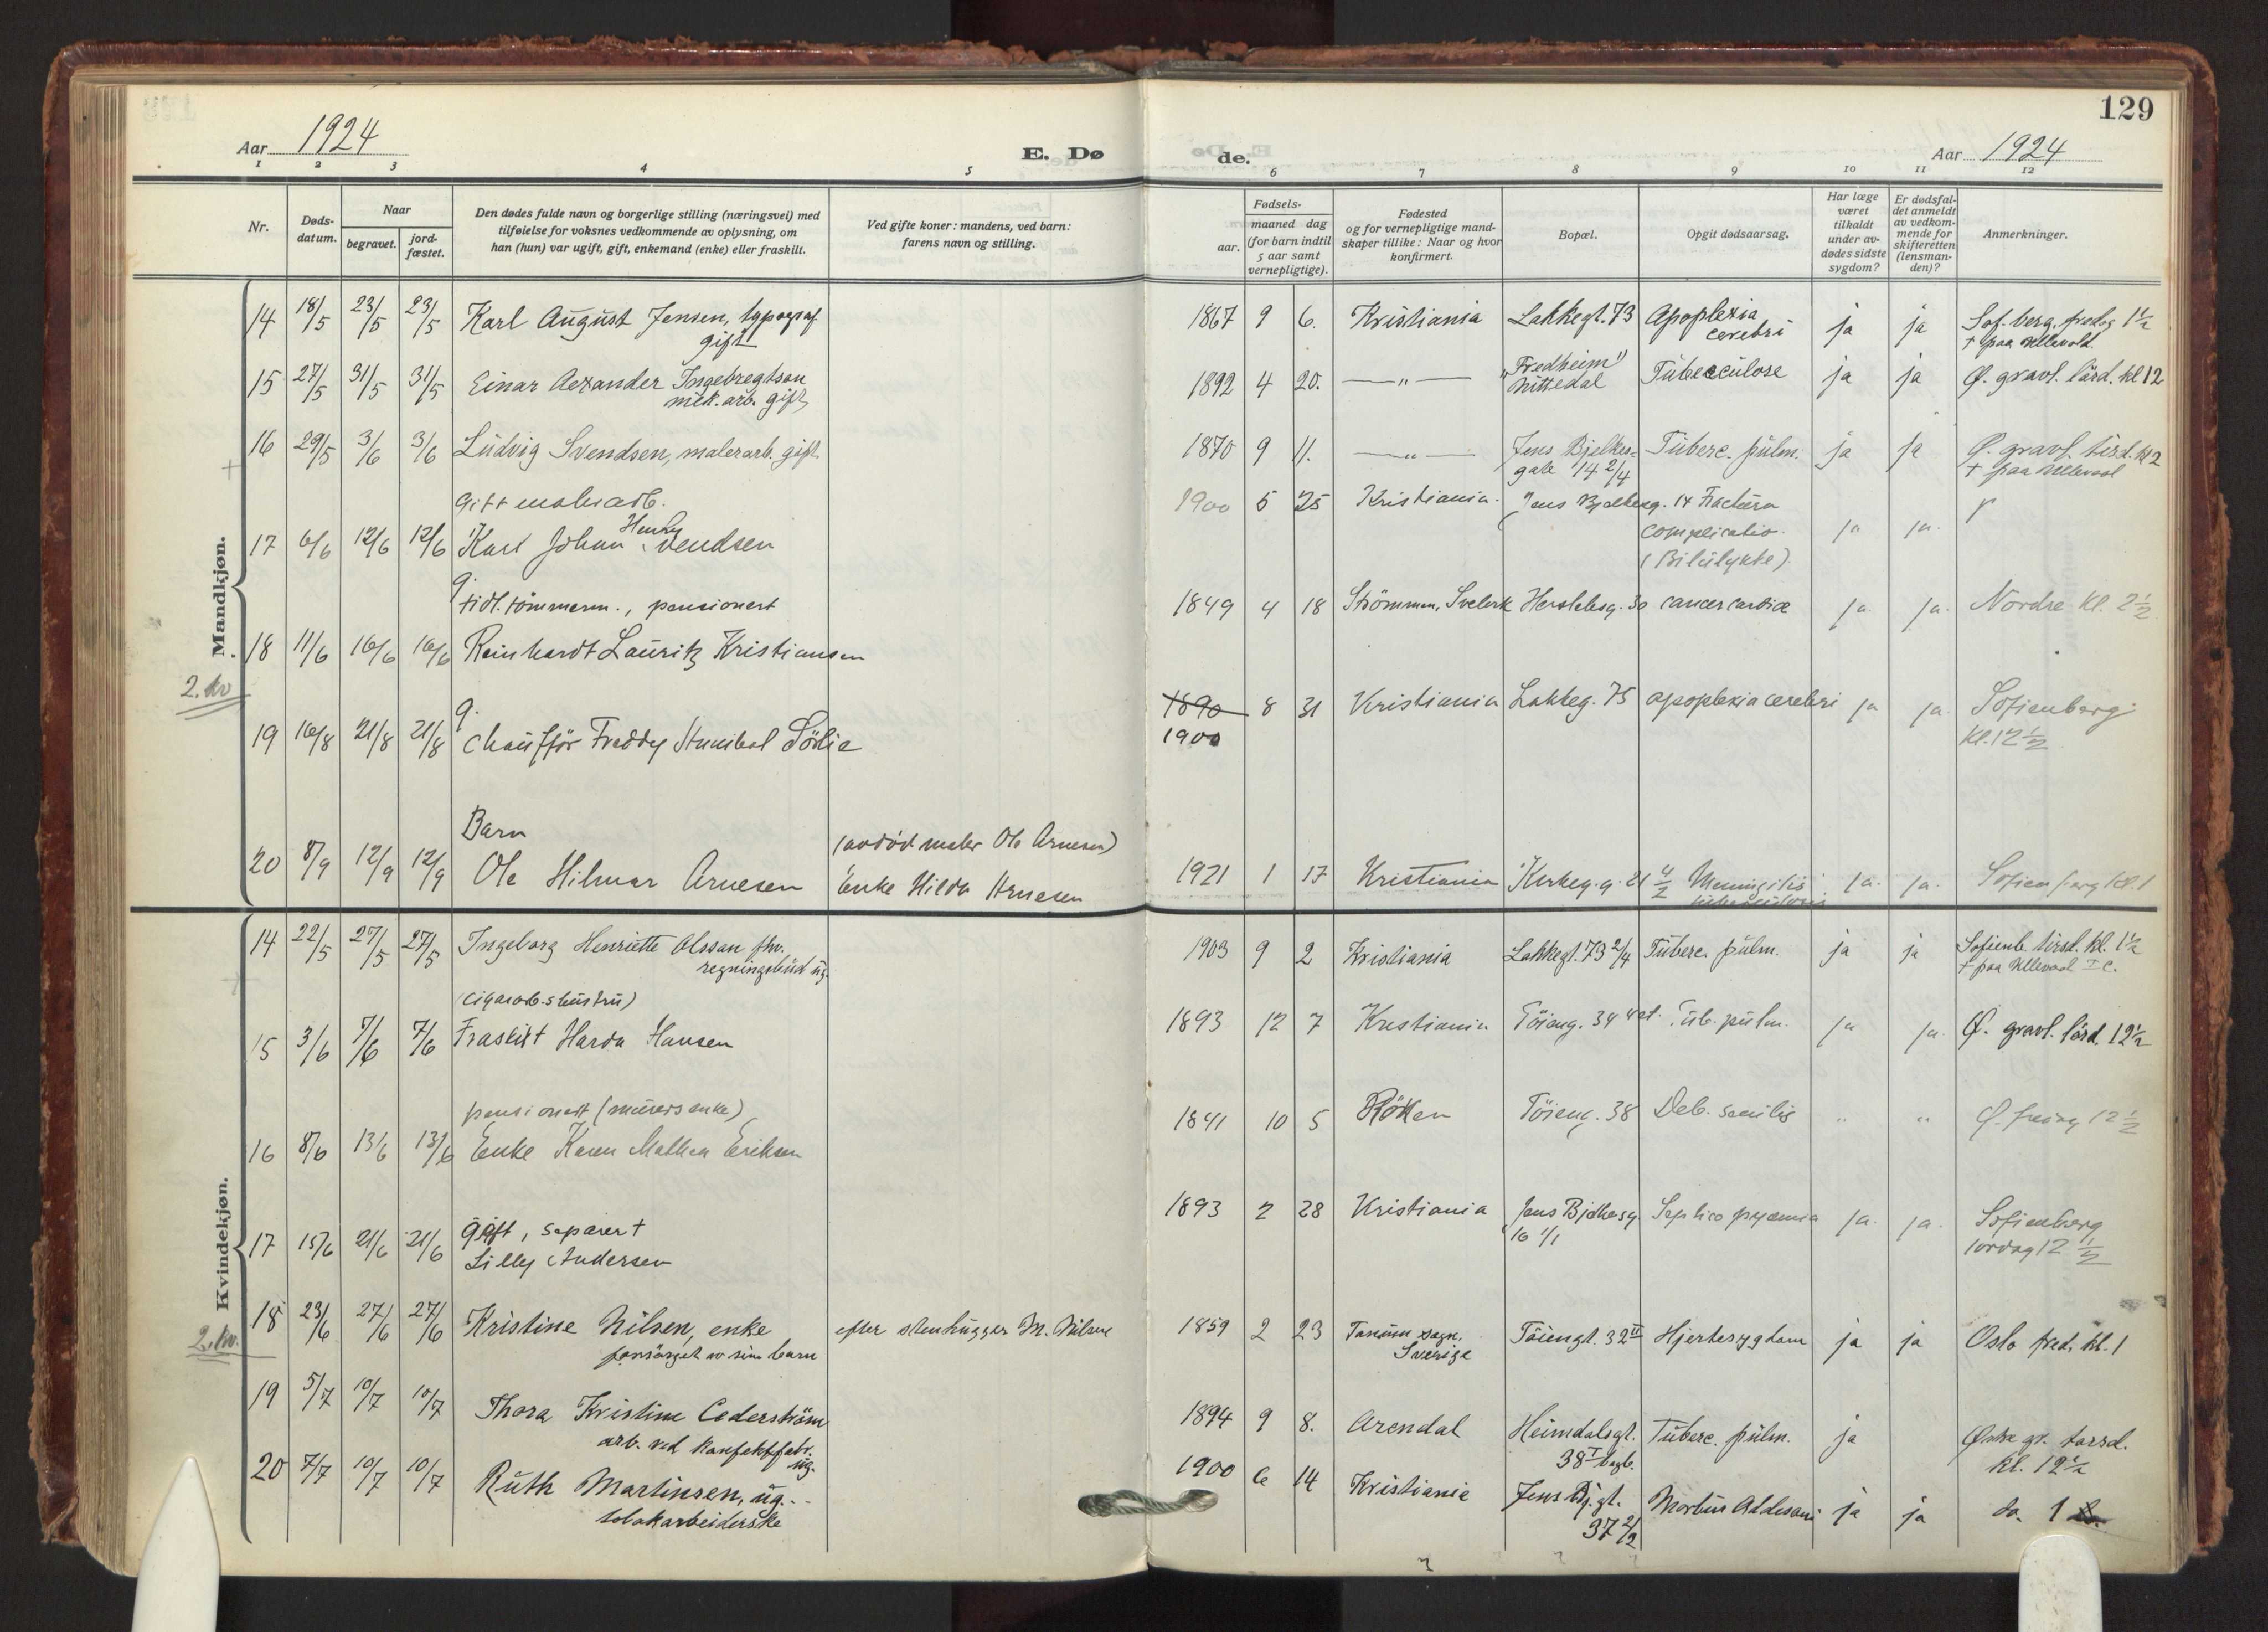 129
Aar 1924
E. Dø
de.
Aar 1924
1 2 3 4 5 6 7 8 9 10 11 12
Nr.
Døds-
datum.
Naar
begravet.
jord-
fæstet.
Den dødes fulde navn og borgerlige stilling (næringsvei) med
tilføielse for voksnes vedkommende av oplysning, om
han (hun) var ugift, gift, enkemand (enke) eller fraskilt.
Ved gifte koner: mandens, ved barn:
farens navn og stilling.
Fødsels-
aar.
maaned dag
(for barn indtil
5 aar samt
vernepligtige).
Fødested
og for vernepligtige mand-
skaper tillike: Naar og hvor
konfirmert.
Bopæl.
Opgit dødsaarsag.
Har læge
været
tilkaldt
under av-
dødes sidste
sygdom?
Er dødsfal-
det anmeldt
av vedkom-
mende for
skifteretten
(lensman-
den)?
Anmerkninger.
Mandkjøn.
14 18/5 23/5 23/5 Karl August Jensen, typograf
gift
1867 9 6. Kristiania Lakkegt. 73 Apoplexia
cerebri
ja ja Sof. berg. fredag 1 1/2
+ paa Ullevold
15 27/5 31/5 31/5 Einar Aexander Ingebregtson
mek. arb. gift
1892 4 20. —„— „Fredheim"
Nittedal
Tuberculose ja ja Ø. gravl. lörd. kl 12
16 29/5 3/6 3/6 Ludvig Svendsen, malerarb. gift
1870 9 11. —„— Jens Bjelkes-
gate 14 2/4
Tuberc. pulm. ja ja Ø. gravl. tirsd. kl 2
+ paa Ullevaal
Gift malerarb.
17 6/6 12/6 12/6 Karl Johan Henry Svendsen
1900 5 25 Kristiania. Jens Bjelkesg. 14 Fractura
complicatio.
(Bilulykke)
ja ja.
g.
tidl. tömmerm., pensionert
18 11/6 16/6 16/6 Reinhardt Lauritz Kristiansen
1849 4 18 Strömmen, Svelvik Herslebsg. 30 cancer cardiæ ja. ja. Nordre kl. 2 1/2
2. kv
g.
19 16/8 21/8 21/8 chaufför Freddy Hanibal Sörlie
1890 8 31 Kristiania Lakkeg. 75 apoplexia cerebri ja ja. Sofienberg
1900 kl. 12 1/2
Barn
20 8/9 12/9 12/9 Ole Hilmar Arnesen
(avdöd maler Ole Arnesen)
Enke Hilda Arnesen
1921 1 17 Kristiania Kirkeg.g. 21 4/2 Meningitis
tuberculosa
ja. ja. Sofienberg kl. 1
Kvindekjøn.
14 22/5 27/5 27/5 Ingeborg Henriette Olsson fhv.
regningsbud ug.
1903 9 2 Kristiania Lakkegt. 73 2/4 Tuberc. pulm. ja ja Sofienb. tirsd. kl. 1 1/2
+ paa Ullevaal I C.
(cigararb.s hustru)
15 3/6 7/6 7/6 Fraskilt Harda Hansen
1893 12 7 Kristiania Töieng. 34 4 et. Tub. pulm. ja ja. Ø. gravl. lörd. 12 1/2
pensionert (murers enke)
16 8/6 13/6 13/6 Enke Karen Mathea Eriksen
1841 10 5 Röken Töieng. 38 Deb. senilis „ „ Ø. fredag 12 1/2
17 15/6 21/6 21/6 gift, separert
Lilly Andersen
1893 2 28 Kristiania Jens Bjelkesg.
16 1/1
Septico pyæmia ja. ja. Sofienberg
lördag 12 1/2
18 23/6 27/6 27/6 Kristine Nilsen, enke
forsörget av sine barn
efter stenhugger M. Nilsen
1859 2 23 Tanum sogn,
Sverige
Töiengt. 32 II Hjertesygdom ja ja Oslo fred. kl. 1
2. kv.
19 5/7 10/7 10/7 Thora Kristine Cederström
arb. ved konfektfabr.
ug.
1894 9 8. Arendal Heimdalsgt.
38 I bagb.
Tuberc. pulm. ja Østre gr. torsd.
kl. 12 1/2
20 7/7 10/7 10/7 Ruth Martinsen, ug.
tobakarbeiderske
1900 6 14 Kristiania Jens Bj.gt.
37 2/2
Morbus Addesoni ja ja do. 1